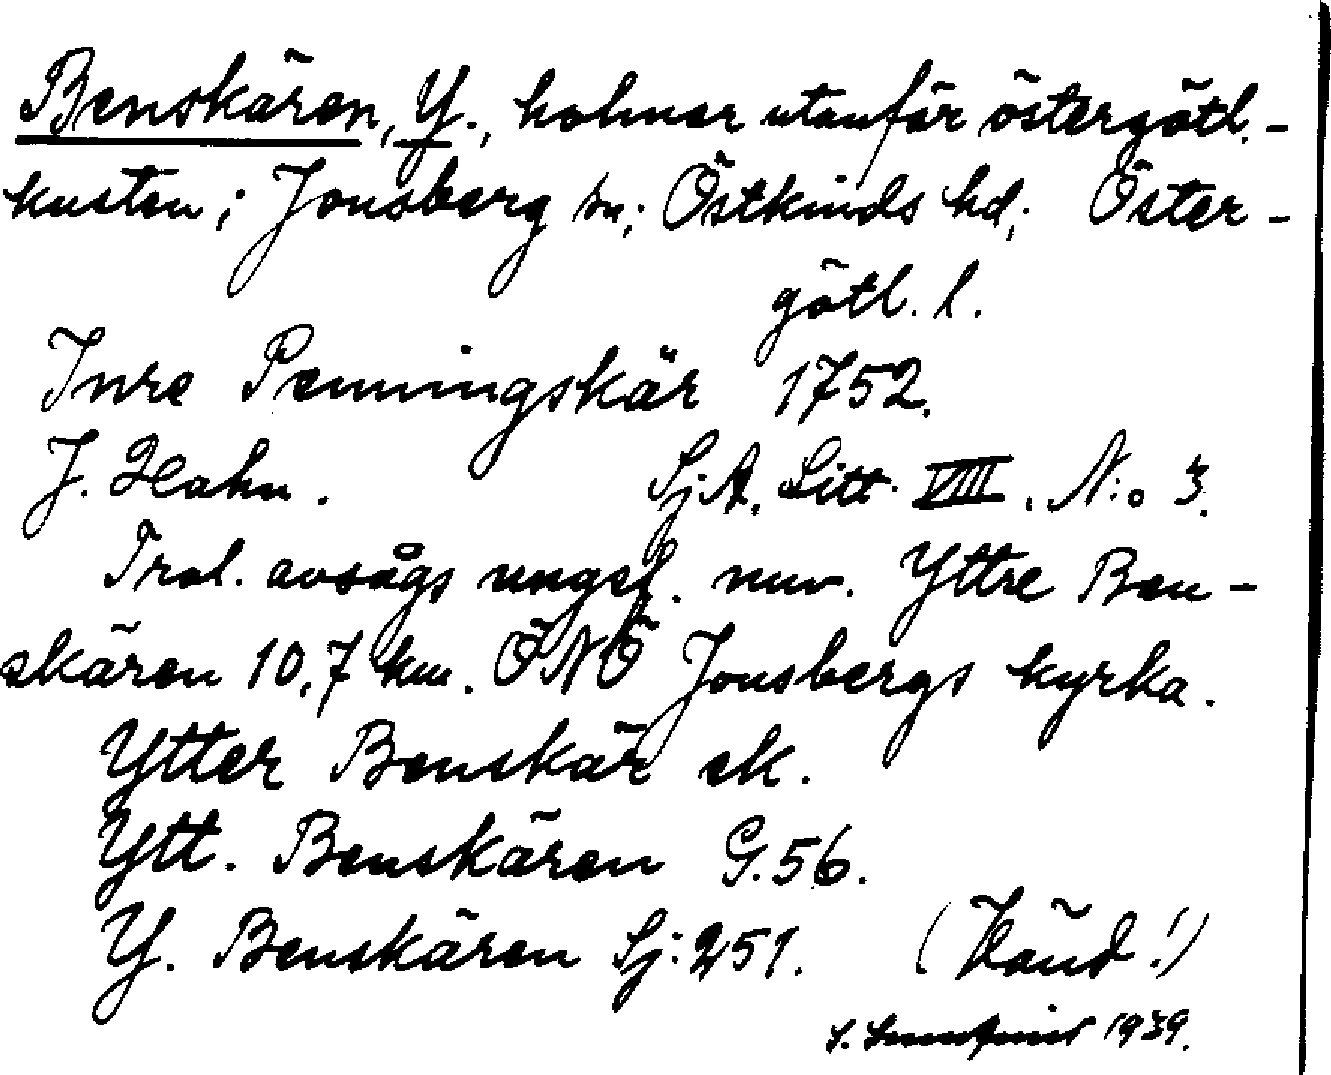 Benskären, Y., holmar utanför östergötl.-
kusten; Jonsberg sn; Östkinds hd; Öster-
götl. l.
Inre Penningskär 1752.
J. Hahn. Sj.A. Litt. VIII. N:o 3.
Trol. avsågs ungef. nuv. Yttre Ben-
skären 10,7 km. ÖNÖ Jonsbergs kyrka.
Ytter Benskär ek.
Ytt. Benskären G.56.
Y. Benskären Sj:251. (Vänd!)
1939.